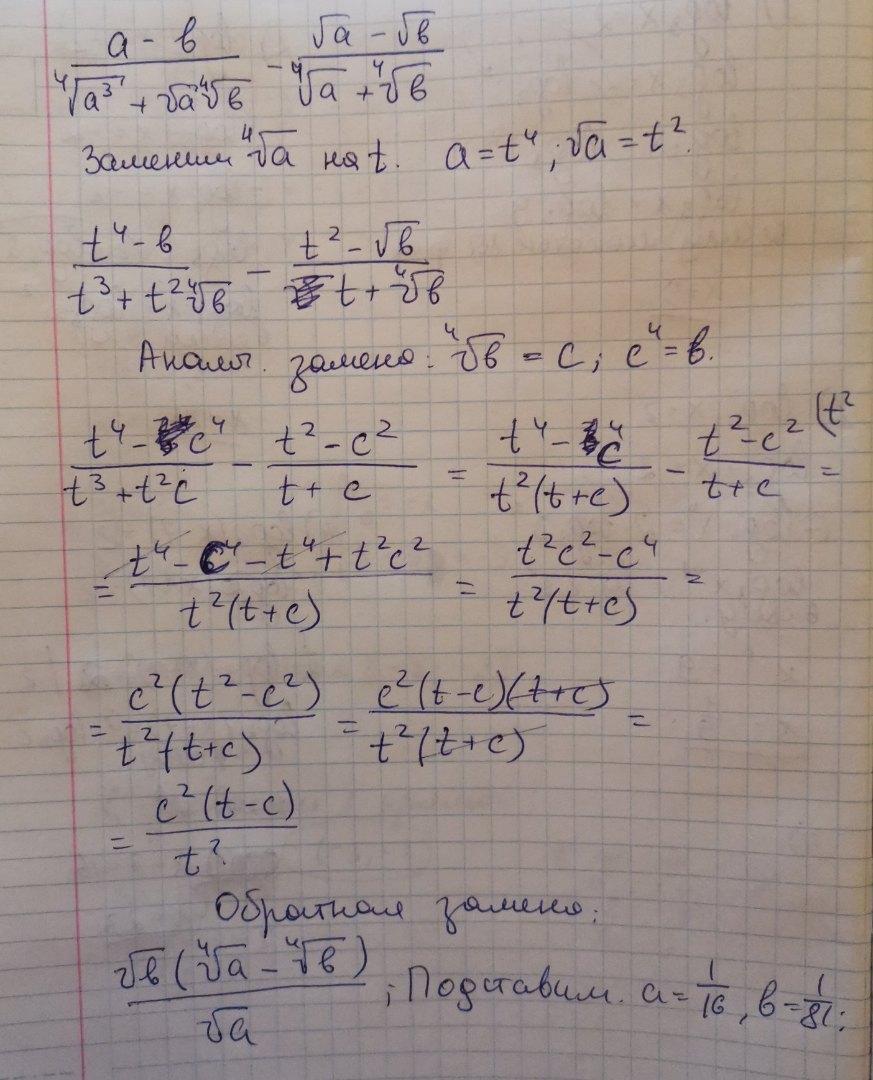 (a - b)/(⁴√a³ + √a ⁴√b) - (√a - √b)/(⁴√a + ⁴√b)
Заменим ⁴√a на t. a = t⁴; √a = t².
(t⁴ - b)/(t³ + t² ⁴√b) - (t² - √b)/(t + ⁴√b)
Аналог. замена: ⁴√b = c; c⁴ = b.
(t⁴ - c⁴)/(t³ + t²c) - (t² - c²)/(t + c) = (t⁴ - c⁴)/(t²(t+c)) - (t² - c²)/(t+c) (t² =
= (t⁴ - c⁴ - t⁴ + t²c²)/(t²(t+c)) = (t²c² - c⁴)/(t²(t+c)) =
= c²(t² - c²)/(t²(t+c)) = c²(t-c)(t+c)/(t²(t+c)) =
= c²(t-c)/t².
Обратная замена:
√b(⁴√a - ⁴√b)/√a ; Подставим. a = 1/16, b = 1/81;